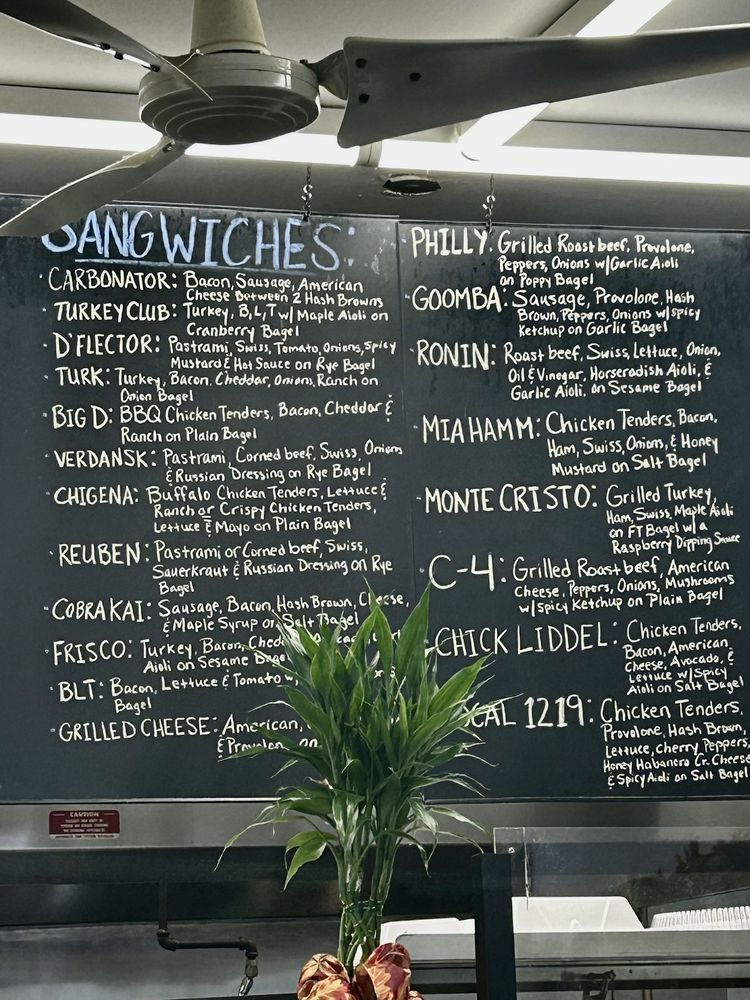 SANGWICHES:
CARBONATOR: Bacon, Sausage, American
Cheese Between 2 Hash Browns
TURKEY CLUB: Turkey, B,L,T w/ Maple Aioli on
Cranberry Bagel
D'FLECTOR: Pastrami, Swiss, Tomato, Onions, Spicy
Mustard & Hot Sauce on Rye Bagel
TURK: Turkey, Bacon, Cheddar, Onions, Ranch on
Onion Bagel
BIG D: BBQ Chicken Tenders, Bacon, Cheddar &
Ranch on Plain Bagel
VERDANSK: Pastrami, Corned beef, Swiss, Onions
& Russian Dressing on Rye Bagel
CHIGENA: Buffalo Chicken Tenders, Lettuce &
Ranch or Crispy Chicken Tenders,
Lettuce & Mayo on Plain Bagel
REUBEN: Pastrami or Corned beef, Swiss,
Sauerkraut & Russian Dressing on Rye
Bagel
COBRA KAI: Sausage, Bacon, Hash Brown, Cheese,
& Maple Syrup on Salt Bagel
FRISCO: Turkey, Bacon,
Aioli on Sesame
BLT: Bacon, Lettuce & Tomato
Bagel
GRILLED CHEESE: American,
&
PHILLY: Grilled Roast beef, Provolone,
Peppers, Onions w/ Garlic Aioli
on Poppy Bagel
GOOMBA: Sausage, Provolone, Hash
Brown, Peppers, Onions w/ spicy
Ketchup on Garlic Bagel
RONIN: Roast beef, Swiss, Lettuce, Onion,
Oil & Vinegar, Horseradish Aioli, &
Garlic Aioli, on Sesame Bagel
MIA HAMM: Chicken Tenders, Bacon,
Ham, Swiss, Onions, & Honey
Mustard on Salt Bagel
MONTE CRISTO: Grilled Turkey,
Ham, Swiss, Maple Aioli
on FT Bagel w/ a
Raspberry Dipping Sauce
C-4: Grilled Roast beef, American
Cheese, Peppers, Onions, Mushrooms
w/ spicy Ketchup on Plain Bagel
CHICK LIDDEL: Chicken Tenders,
Bacon, American
Cheese, Avocado, &
Lettuce w/ Spicy
Aioli on Salt Bagel
1219: Chicken Tenders,
Provolone, Hash Brown,
Lettuce, Cherry Peppers,
Honey Habanero Cr. Cheese
& Spicy Aioli on Salt Bagel
CAUTION